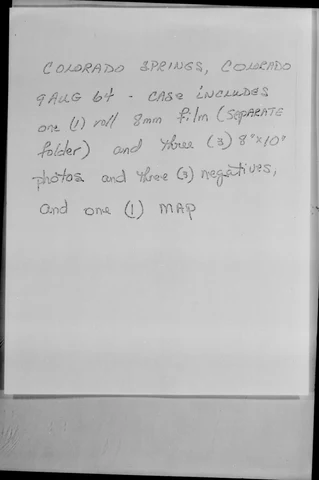 COLORADO SPRINGS, COLORADO
9 AUG 64 - CASE INCLUDES
one (1) roll 8mm film (SEPARATE
folder) and three (3) 8"x10"
photos and three (3) negatives,
and one (1) MAP